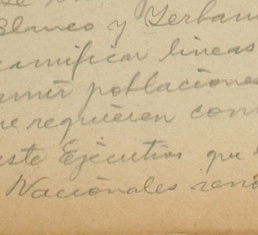 Blanco y Yerban
ramificar lineas
unir poblaciones
que requieren con
este Ejecutivo que
Nacionales ren